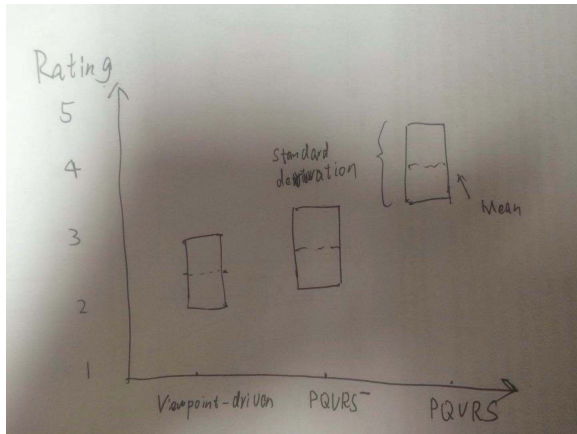 Rating
5
4
3
2
1
standard
Mean
Viewpoint-driven
PQVRS-
PQVRS